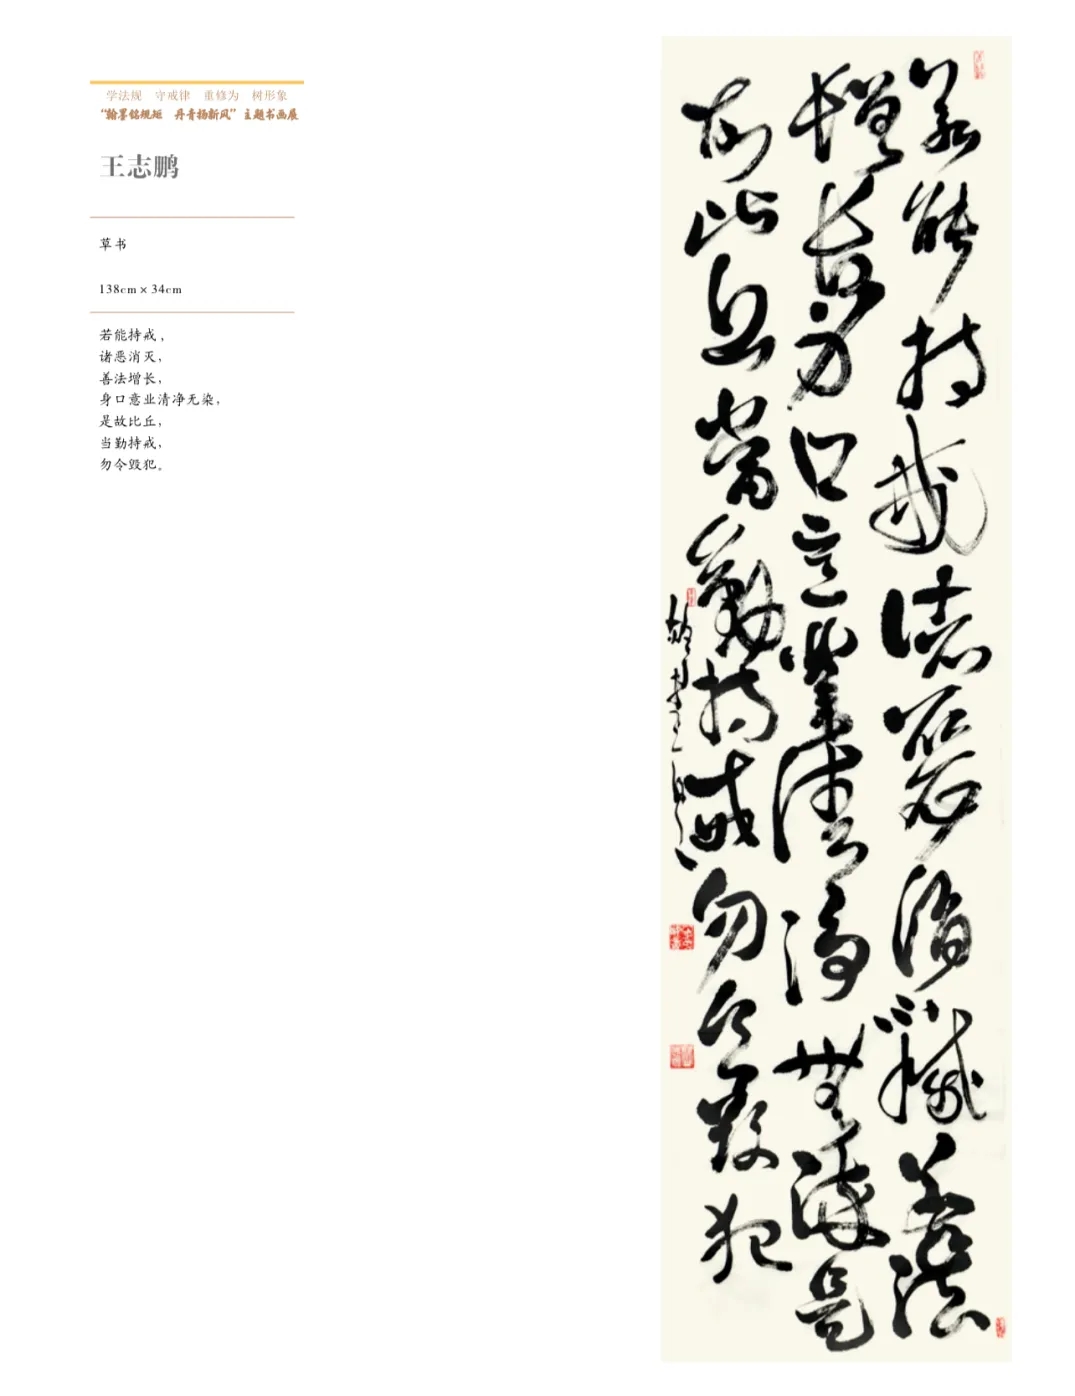 学法规 守戒律 重修为 树形象
“翰墨铭规矩 丹青扬新风”主题书画展
王志鹏
草书
138cm × 34cm
若能持戒，
诸恶消灭，
善法增长，
身口意业清净无染，
是故比丘，
当勤持戒，
勿令毁犯。
若能持戒诸恶消灭善法
增长身口意业清净无染是
故比丘当勤持戒勿令毁犯